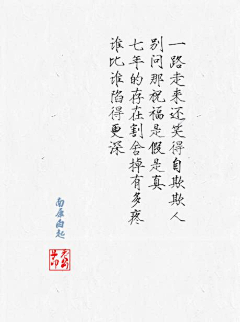 一路走来还笑得自欺欺人
别问那祝福是假是真
七年的存在割舍掉有多疼
谁比谁陷得更深